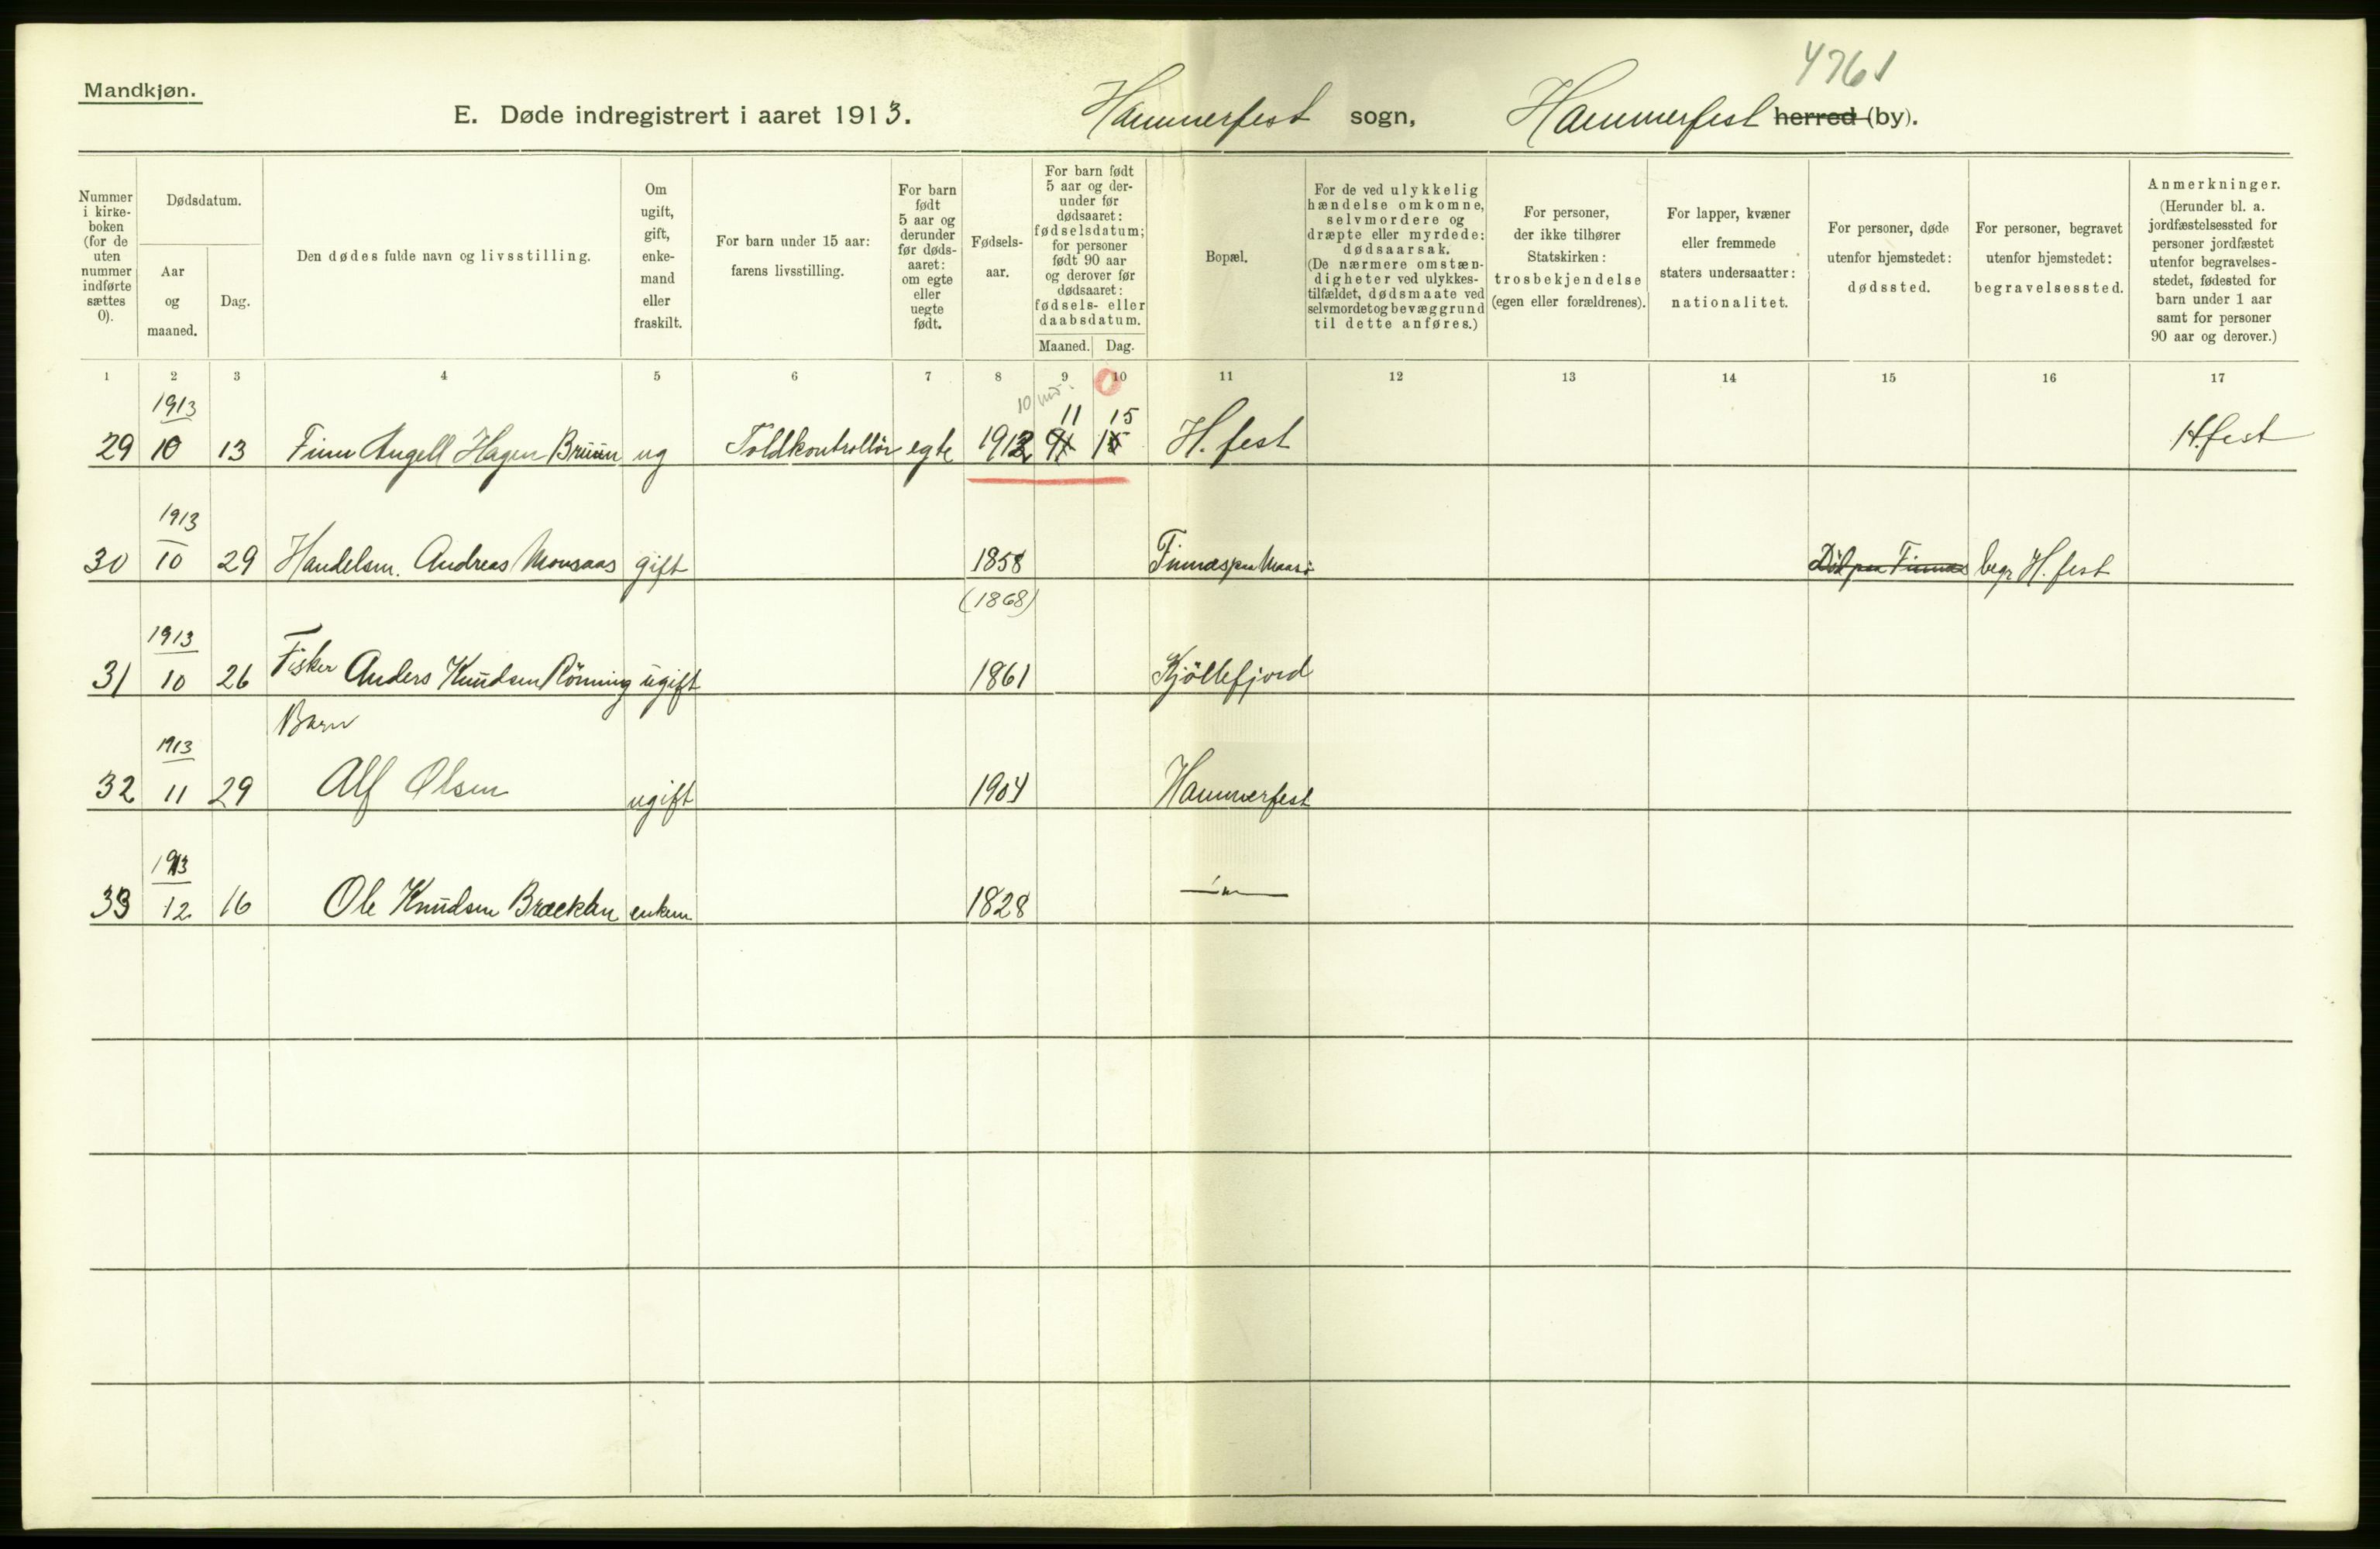 4761
Mandkjøn.
E. Døde indregistrert i aaret 1913. Hammerfest sogn, Hammerfest herred (by).
Nummer i kirke-boken (for de uten nummer indførte sættes 0).
Dødsdatum.
Aar og maaned.
Dag.
Den dødes fulde navn og livsstilling.
Om ugift, gift, enke-mand eller fraskilt.
For barn under 15 aar: farens livsstilling.
For barn født 5 aar og derunder før døds-aaret: om egte eller uegte født.
Fødsels-aar.
For barn født 5 aar og der-under før dødsaaret: fødselsdatum; for personer født 90 aar og derover før dødsaaret: fødsels- eller daabsdatum.
Maaned. Dag.
Bopæl.
For de ved ulykkelig hændelse omkomne, selvmordere og dræpte eller myrdede: dødsaarsak. (De nærmere omstæn-digheter ved ulykkes-tilfældet, dødsmaate ved selvmordet og bevæggrund til dette anføres.)
For personer, der ikke tilhører Statskirken: trosbekjendelse (egen eller forældrenes).
For lapper, kvæner eller fremmede staters undersaatter: nationalitet.
For personer, døde utenfor hjemstedet: dødssted.
For personer, begravet utenfor hjemstedet: begravelsessted.
Anmerkninger. (Herunder bl. a. jordfæstelsessted for personer jordfæstet utenfor begravelses-stedet, fødested for barn under 1 aar samt for personer 90 aar og derover.)
1 2 3 4 5 6 7 8 9 10 11 12 13 14 15 16 17
1913 10 md. 11 15
29 10 13 Finn Angell Hagen Bruun ug Toldkontrollör egte 1912 H.fest H.fest
1913
30 10 29 Handelsm. Andreas Monsaas gift 1858 Finnæs paa Maasö Död paa Finnæs begr H.fest
(1868)
1913
31 10 26 Fisker Anders Knudsen Rönning ugift 1861 Kjöllefjord
Barn
1913
32 11 29 Alf Olsen ugift 1904 Hammerfest
1913
33 12 16 Ole Knudsen Brækken enkem 1828 —"—